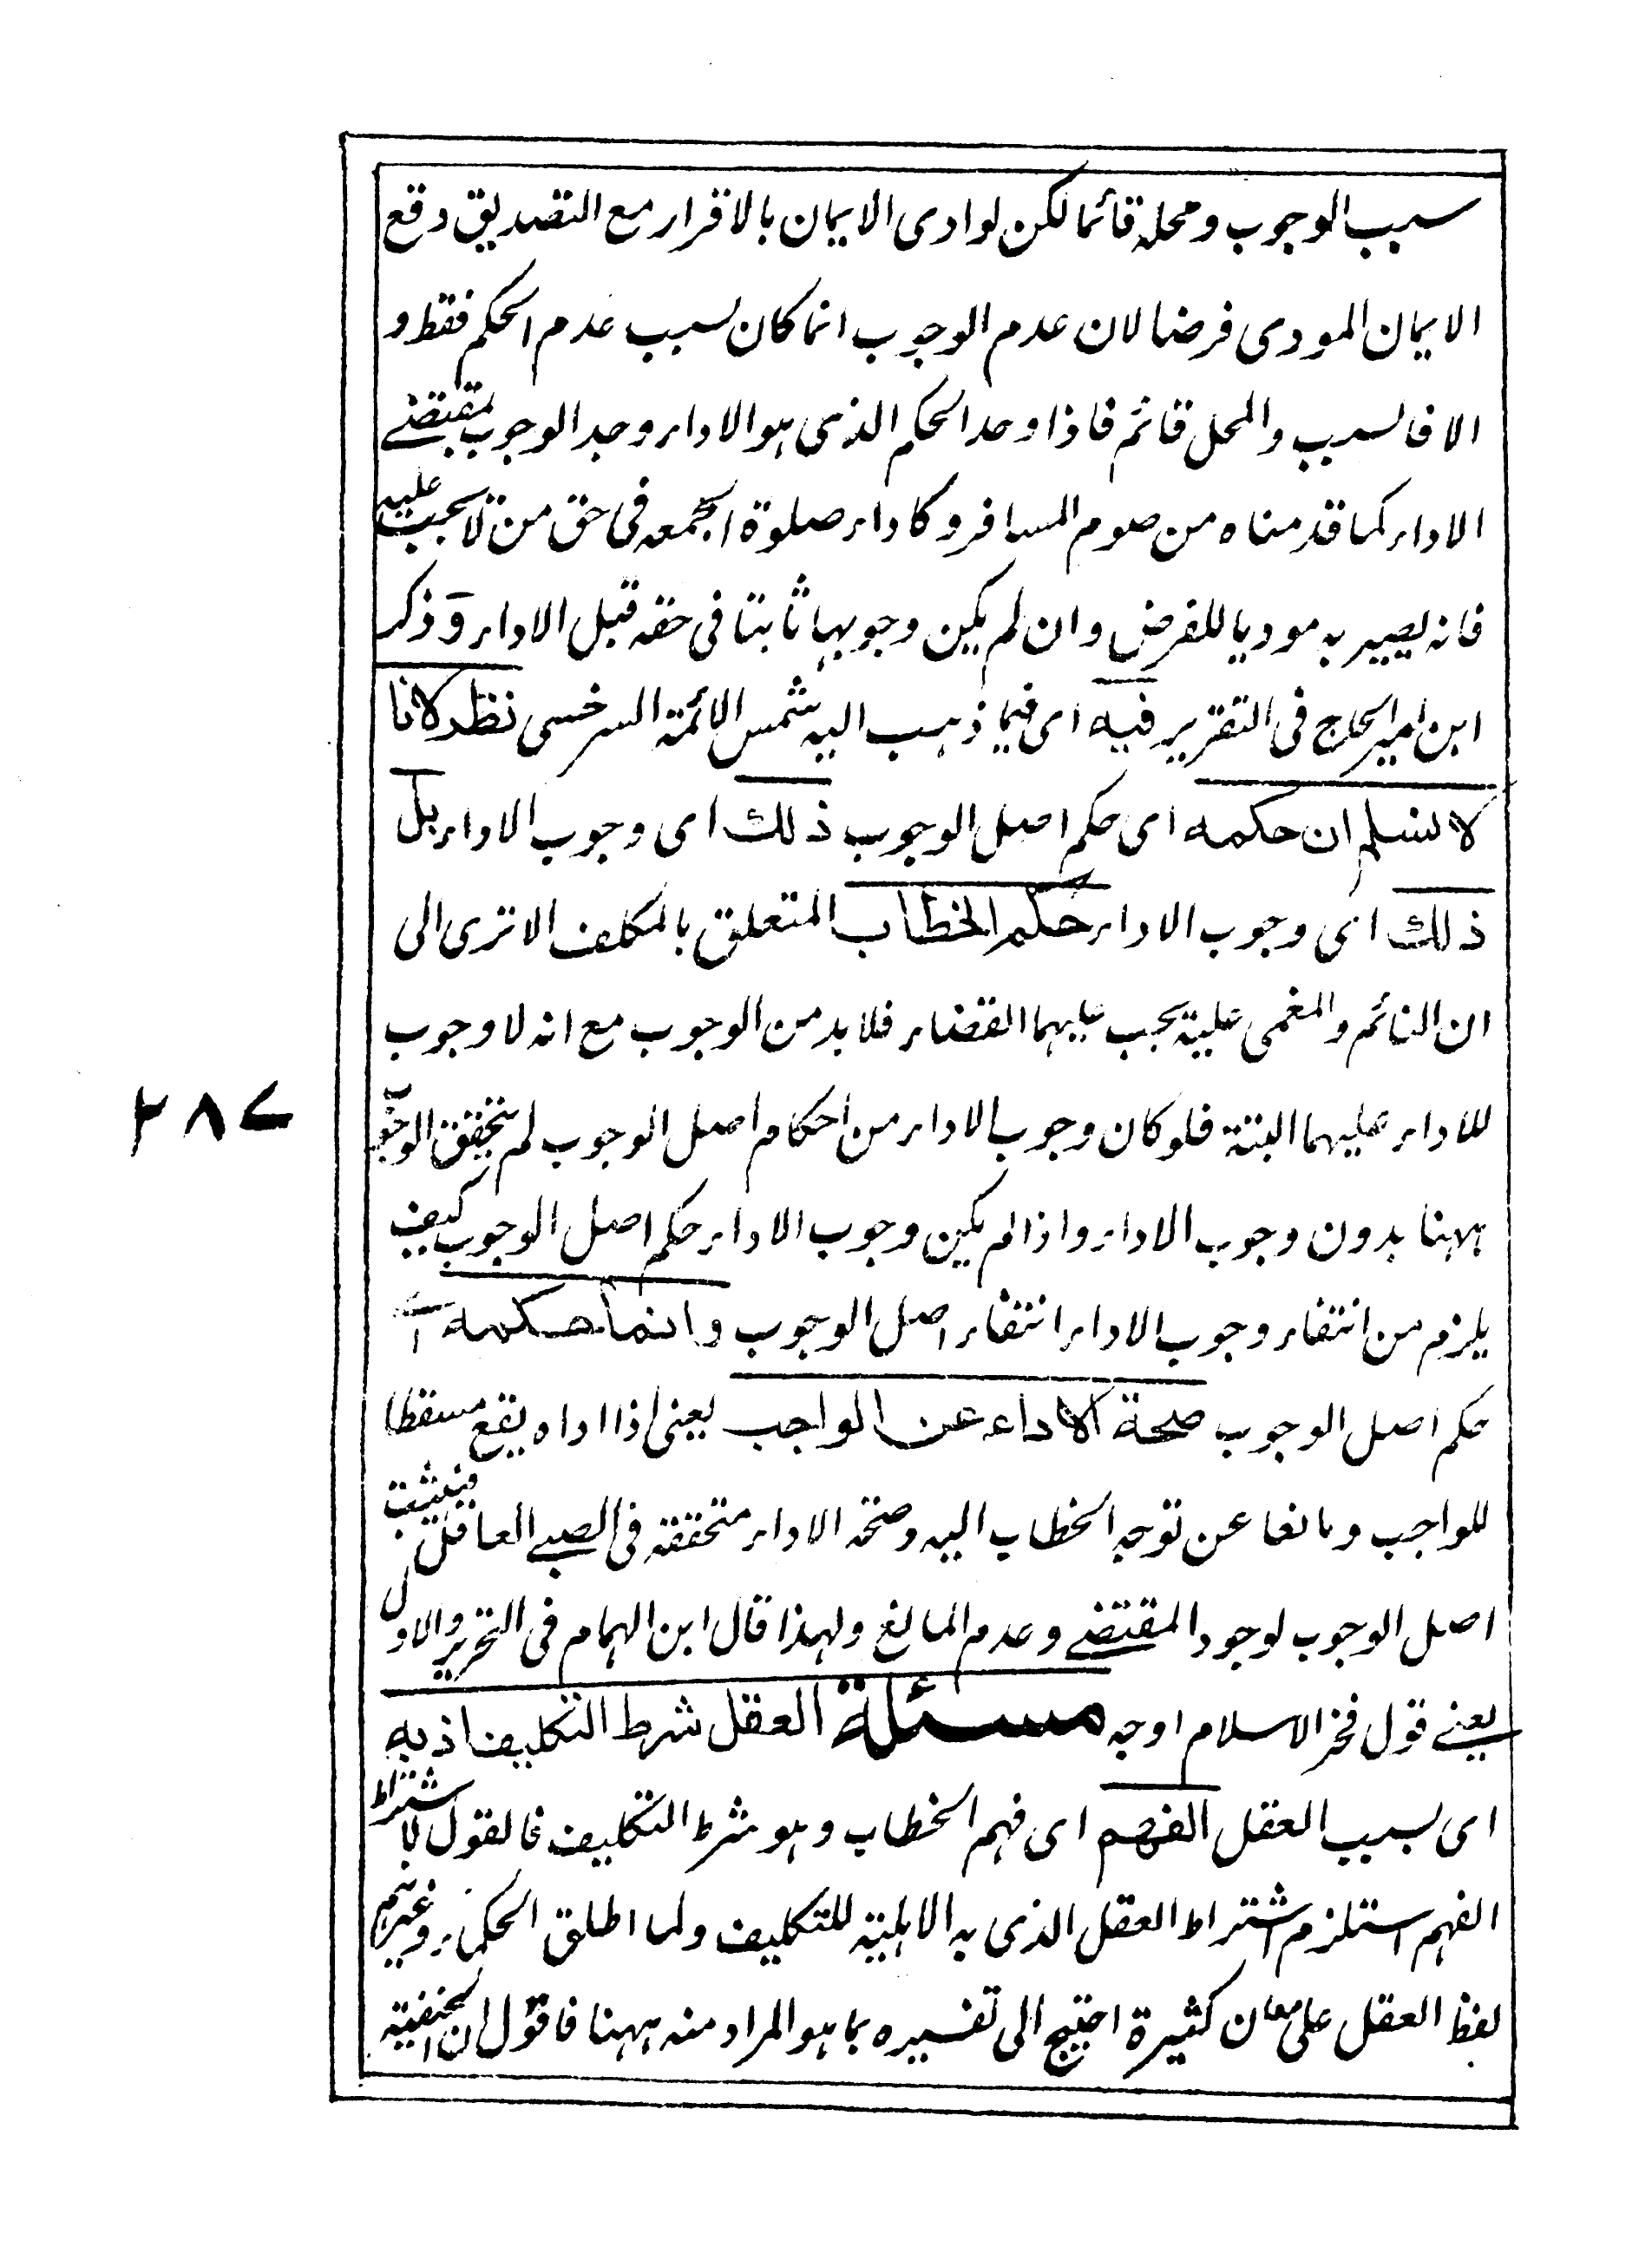 سبب الوجوب ومحله قائما لكن لو ادى الايمان بالاقرار مع التصديق وقع
الايمان المودى فرضا لان عدم الوجوب انما كان لسبب عدم الحكم فقط و
الا فالسبب والمحل قائم فاذا وجد الحكم الذى هو الاداء وجد الوجوب بمقتضے
الاداء كما قدمناه من صوم المسافر وكاداء صلوة الجمعه فى حق من لا تجب عليه
فانه يصير به موديا للفرض وان لم يكن وجوبها ثابتا فى حقه قبل الاداء وذكر
ابن امير الحاج فى التقرير فيه اى فيما ذهب اليه شمس الائمة السرخسى نظر لانا
لا نسلم ان حكمه اى حكم اصل الوجوب ذلك اى وجوب الاداء بل
ذلك اى وجوب الاداء حكم الخطاب المتعلق بالمكلف الا ترى الى
ان النائم والمغمى عليه يجب عليهما القضاء فلا بد من الوجوب مع انه لا وجوب
للاداء عليهما البتة فلو كان وجوب الاداء من احكام اصل الوجوب لم يتحقق الوجوب
ههنا بدون وجوب الاداء واذا لم يكن وجوب الاداء حكم اصل الوجوب كيف
يلزم من انتفاء وجوب الاداء انتفاء اصل الوجوب وانما حكمه اى
حكم اصل الوجوب صحة الاداء عن الواجب يعنى اذا اداه يقع مسقطا
للواجب ومانعا عن توجه الخطاب اليه وصحة الاداء متحققة فى الصبے العاقل فيثبت
اصل الوجوب لوجود المقتضے وعدم المانع ولهذا قال ابن الهمام فى التحرير والاول
يعنے قول فخر الاسلام اوجه مسئلة العقل شرط التكليف اذ به
اى بسبب العقل الفهم اى فهم الخطاب وهو شرط التكليف فالقول باشتراط
الفهم استلزم اشتراط العقل الذى به الاهلية للتكليف ولما اطلق الحكماء وغيرهم
لفظ العقل على معان كثيرة احتيج الى تفسيره بما هو المراد منه ههنا فاقول ان الحنفية
٢٨٧